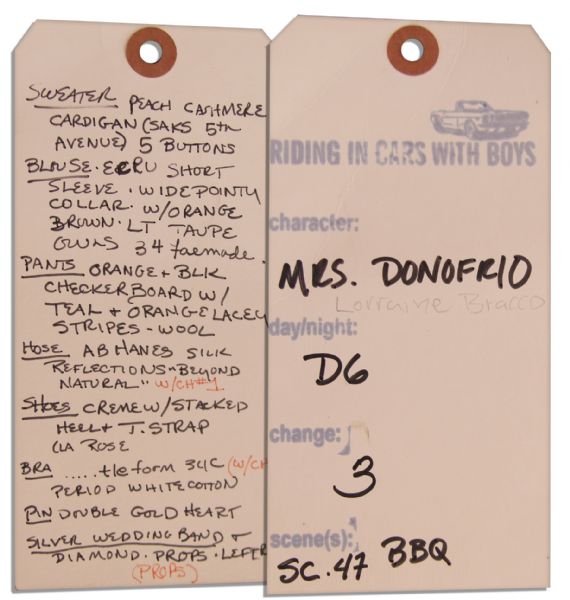 SWEATER PEACH CASHMERE
CARDIGAN (SAKS 5TH
AVENUE) 5 BUTTONS
BLOUSE · ECRU SHORT
SLEEVE · WIDE POINTY
COLLAR · W/ORANGE
BROWN · LT TAUPE
34
PANTS ORANGE + BLK
CHECKERBOARD W/
TEAL + ORANGE LACEY
STRIPES - WOOL
HOSE AB HANES SILK
REFLECTIONS "BEYOND
NATURAL" W/CH#1
SHOES CREME W/STACKED
HEEL + T. STRAP
LA ROSE
BRA ..... tle form 34C (W/CH
PERIOD WHITE COTTON
PIN DOUBLE GOLD HEART
SILVER WEDDING BAND +
DIAMOND · PROPS ·
(PROPS)
RIDING IN CARS WITH BOYS
character:
MRS. DONOFRIO
Lorraine Bracco
day/night:
D6
change:
3
scene(s):
SC. 47 BBQ